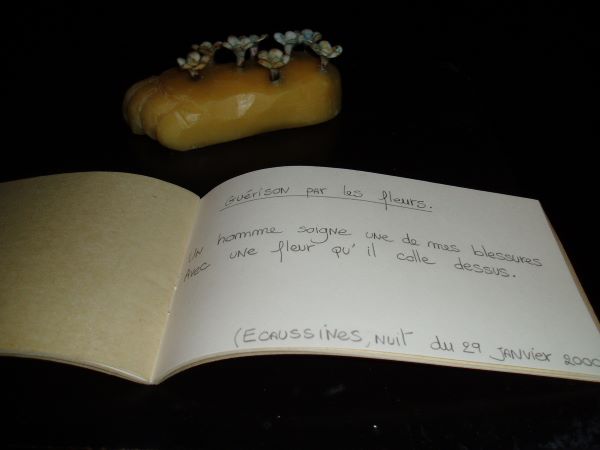 Guérison par les fleurs.
Un homme soigne une de mes blessures
Avec une fleur qu'il colle dessus.
(Ecaussines, nuit du 29 janvier 2000